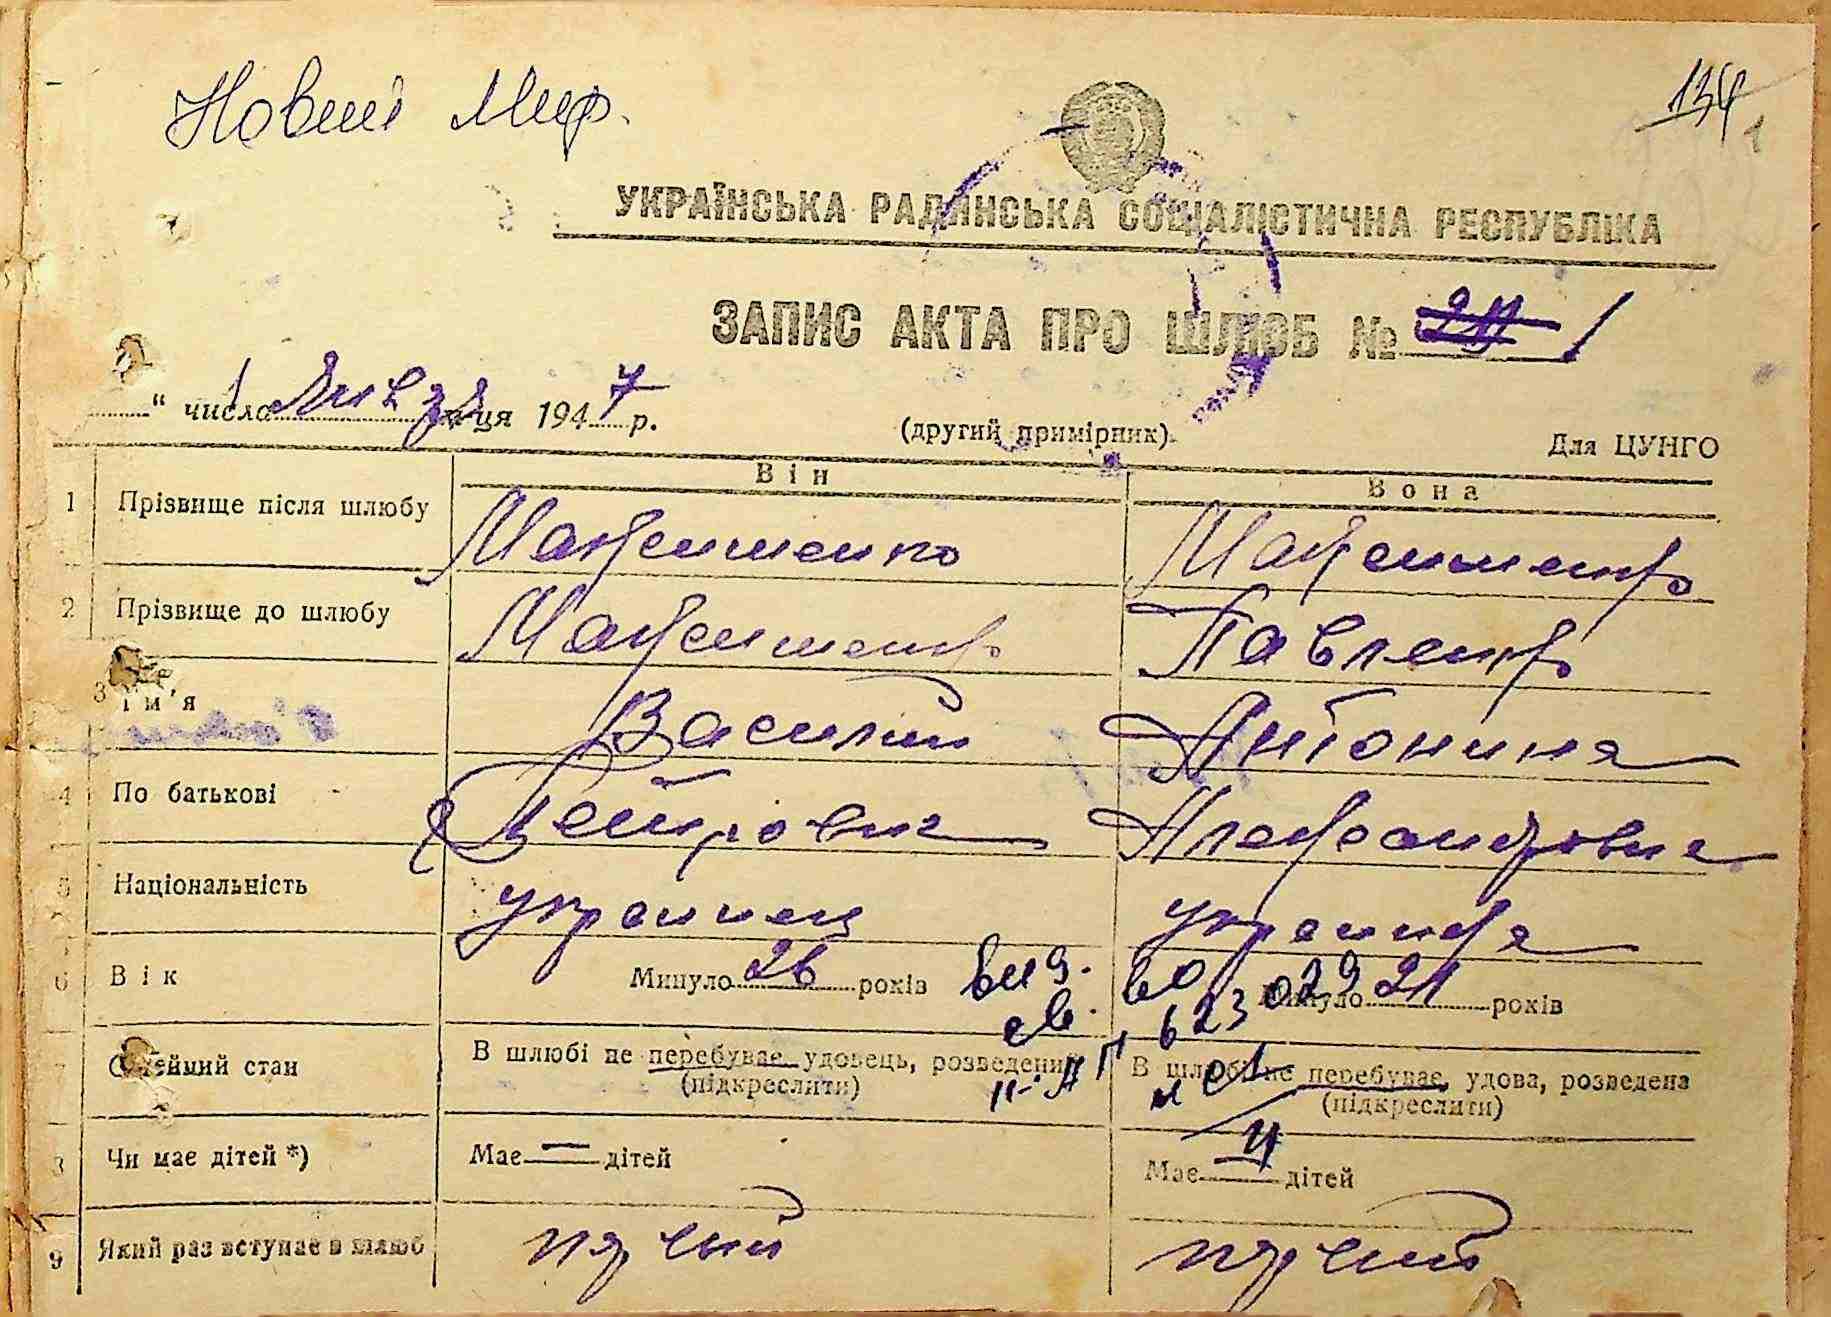 Новий Мир.
134
1
УКРАЇНСЬКА РАДЯНСЬКА СОЦІАЛІСТИЧНА РЕСПУБЛІКА
ЗАПИС АКТА ПРО ШЛЮБ № 1
" 1 числа января місяця 1947 р.
(другий примірник)
Для ЦУНГО
Він Вона
1 Прізвище після шлюбу Максименко Максименко
2 Прізвище до шлюбу Максименко Павленко
3 Ім'я Василий Антонина
4 По батькові Петрович Александровна
5 Національність украинец украинка
6 Вік Минуло 26 років Минуло 21 років
вид. св.
7 Сімейний стан В шлюбі не перебуває, удовець, розведений В шлюбі не перебуває, удова, розведена
(підкреслити) (підкреслити)
8 Чи має дітей *) Має — дітей Має — дітей
9 Який раз вступає в шлюб первый первый